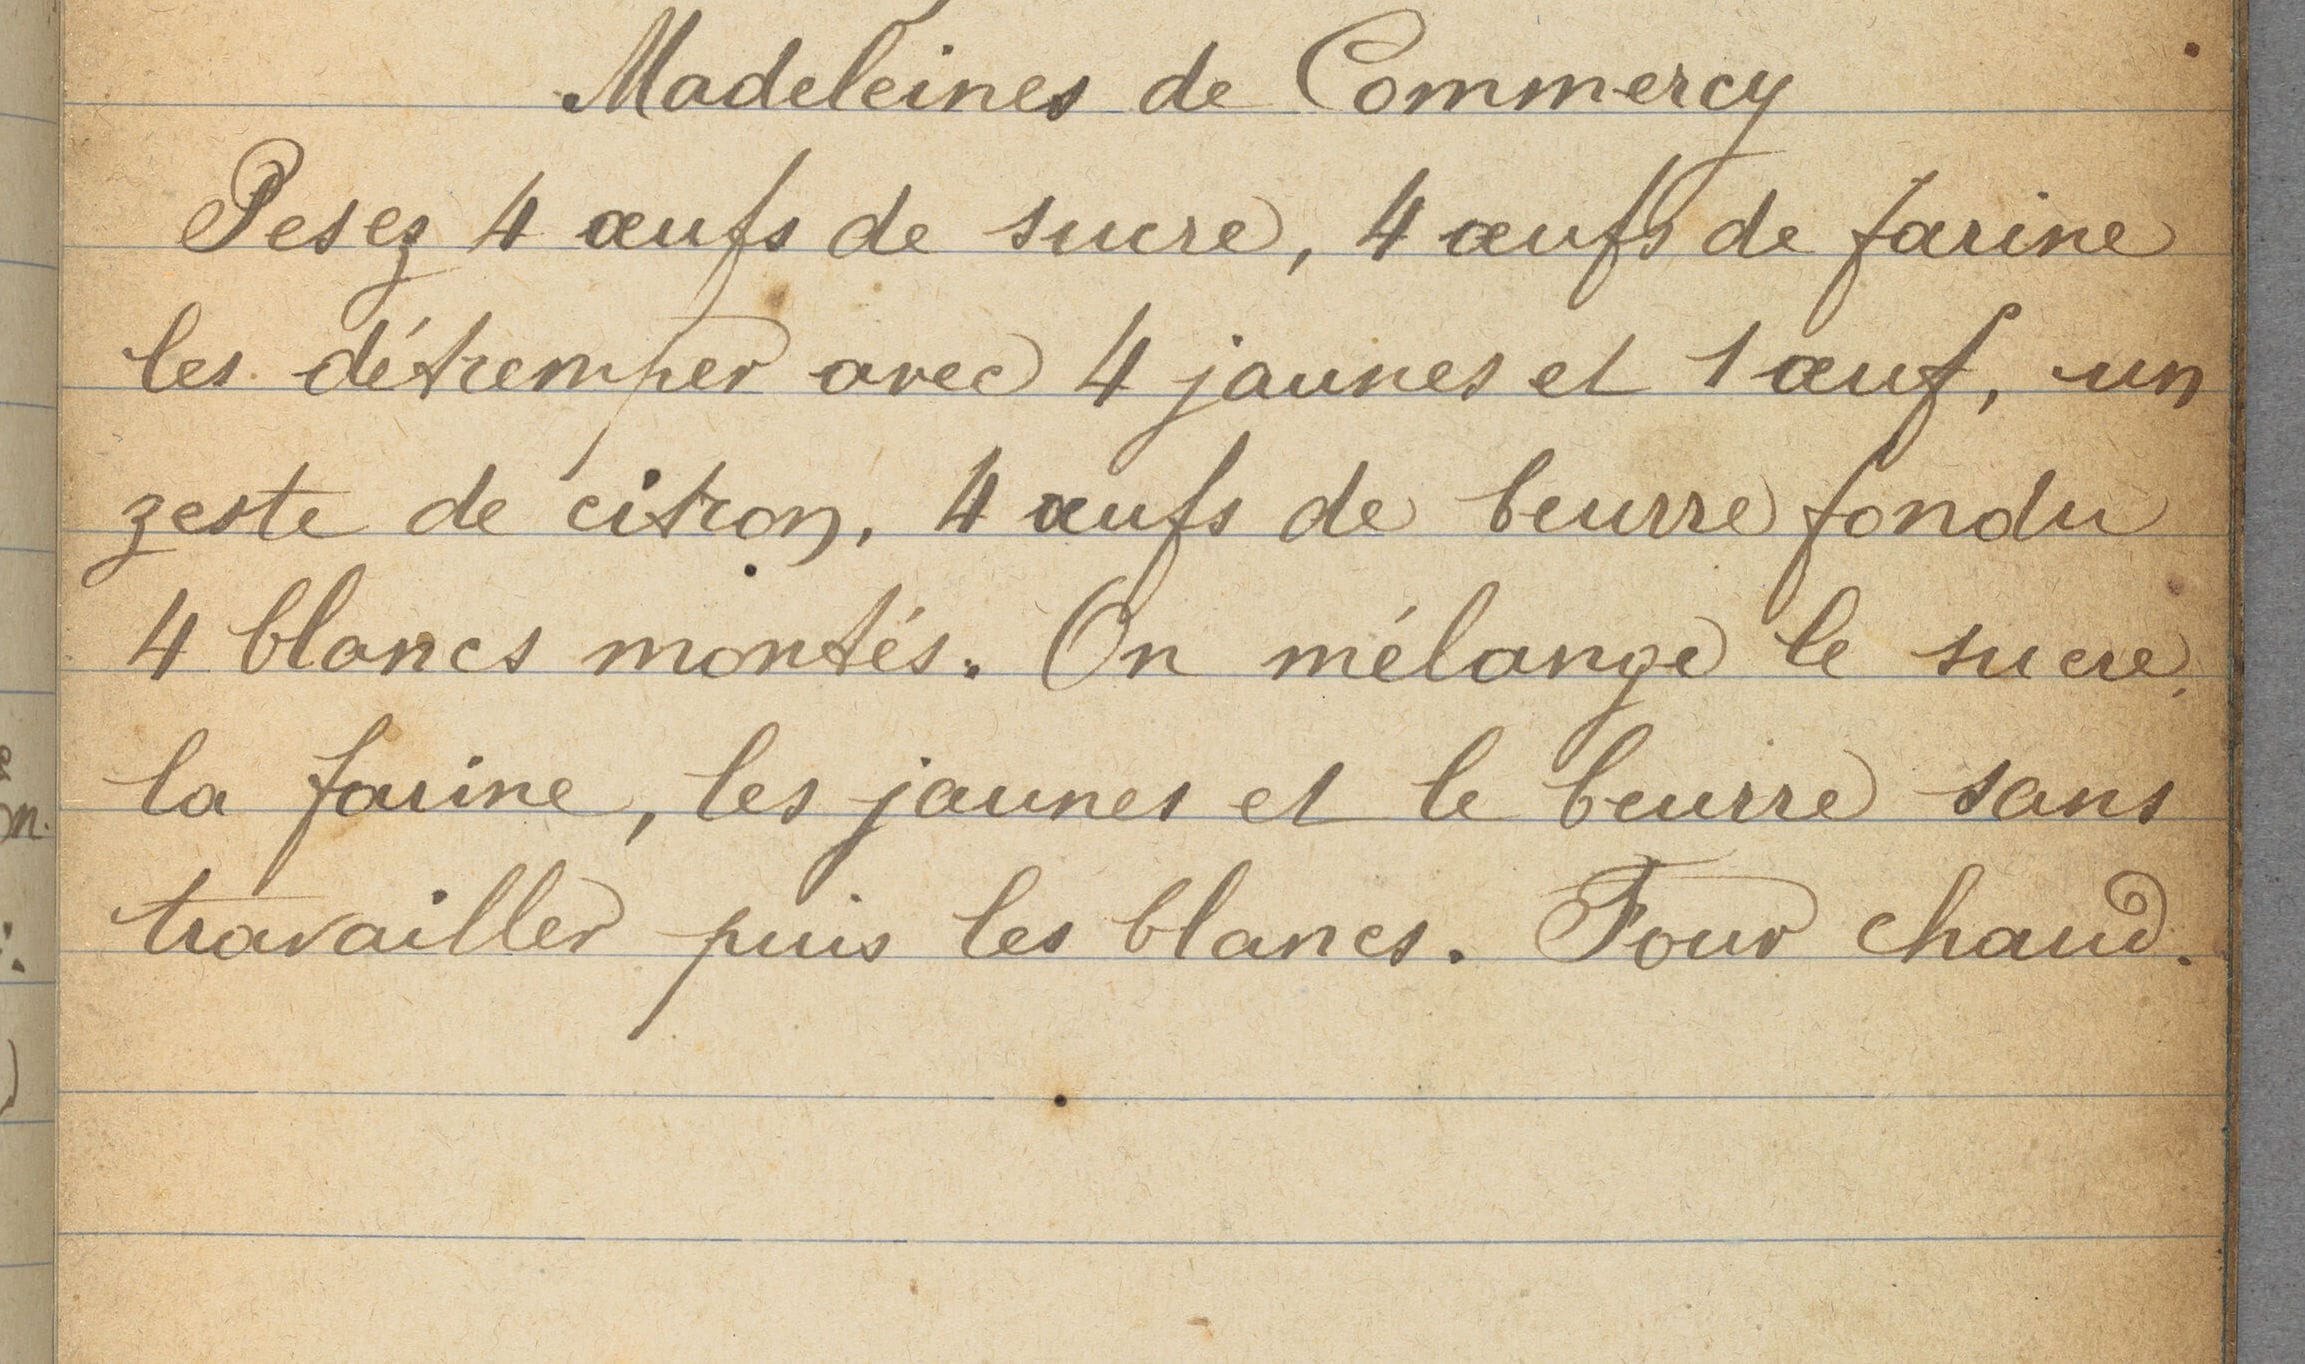 Madeleines de Commercy
Pesez 4 œufs de sucre, 4 œufs de farine
les détremper avec 4 jaunes et 1 œuf, un
zeste de citron, 4 œufs de beurre fondu
4 blancs montés. On mélange le sucre,
la farine, les jaunes et le beurre sans
travailler puis les blancs. Four chaud.